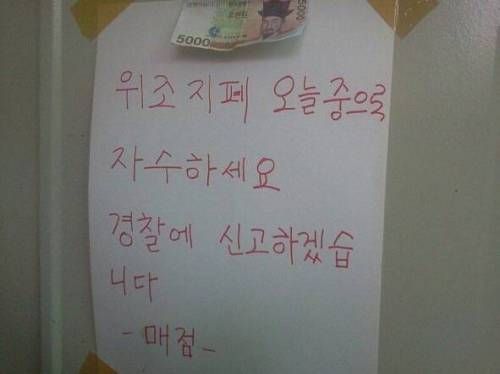 5000
5000
위조 지폐 오늘중으로
자수하세요
경찰에 신고하겠습
니다
- 매점 -